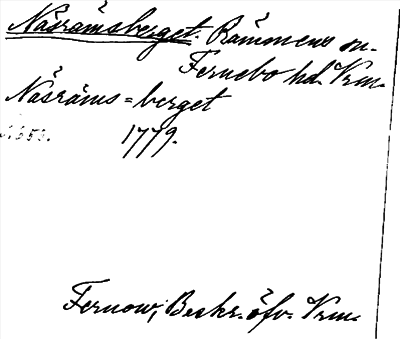 Näsrämsberget. Rämmens sn.
Fernebo hd. Vrm.
Näsräms=berget
1779.
Fernow, Beskr. öfv. Vrm.